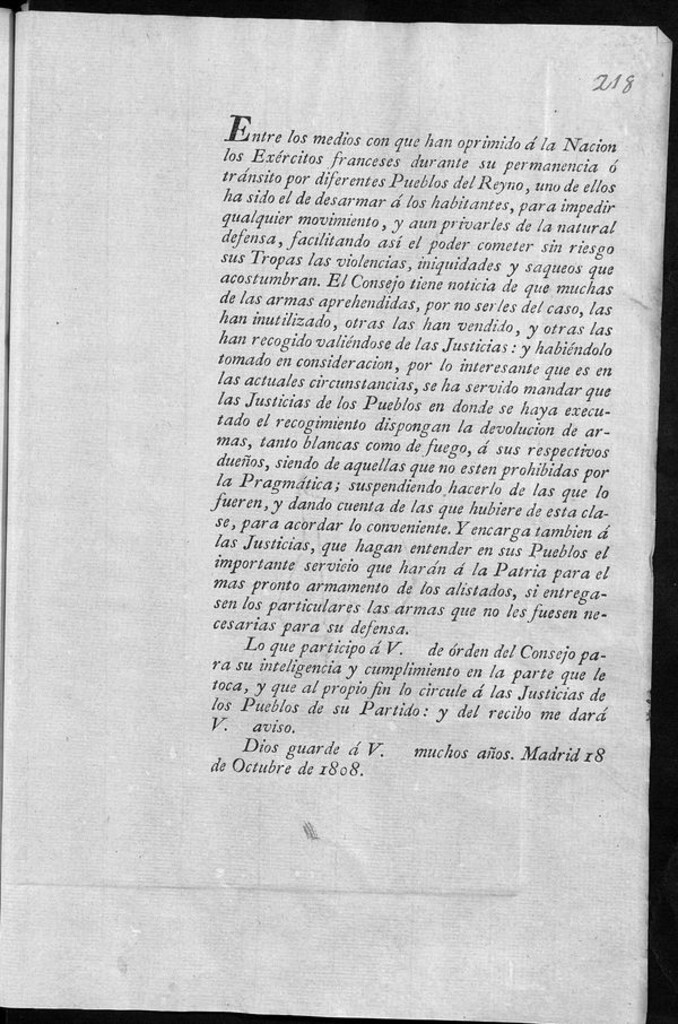 218
Entre los medios con que han oprimido á la Nacion
los Exércitos franceses durante su permanencia ó
tránsito por diferentes Pueblos del Reyno, uno de ellos
ha sido el de desarmar á los habitantes, para impedir
qualquier movimiento, y aun privarles de la natural
defensa, facilitando así el poder cometer sin riesgo
sus Tropas las violencias, iniquidades y saqueos que
acostumbran. El Consejo tiene noticia de que muchas
de las armas aprehendidas, por no serles del caso, las
han inutilizado, otras las han vendido, y otras las
han recogido valiéndose de las Justicias: y habiéndolo
tomado en consideracion, por lo interesante que es en
las actuales circunstancias, se ha servido mandar que
las Justicias de los Pueblos en donde se haya execu-
tado el recogimiento dispongan la devolucion de ar-
mas, tanto blancas como de fuego, á sus respectivos
dueños, siendo de aquellas que no esten prohibidas por
la Pragmática; suspendiendo hacerlo de las que lo
fueren, y dando cuenta de las que hubiere de esta cla-
se, para acordar lo conveniente. Y encarga tambien á
las Justicias, que hagan entender en sus Pueblos el
importante servicio que harán á la Patria para el
mas pronto armamento de los alistados, si entrega-
sen los particulares las armas que no les fuesen ne-
cesarias para su defensa.
Lo que participo á V. de órden del Consejo pa-
ra su inteligencia y cumplimiento en la parte que le
toca, y que al propio fin lo circule á las Justicias de
los Pueblos de su Partido: y del recibo me dará
V. aviso.
Dios guarde á V. muchos años. Madrid 18
de Octubre de 1808.